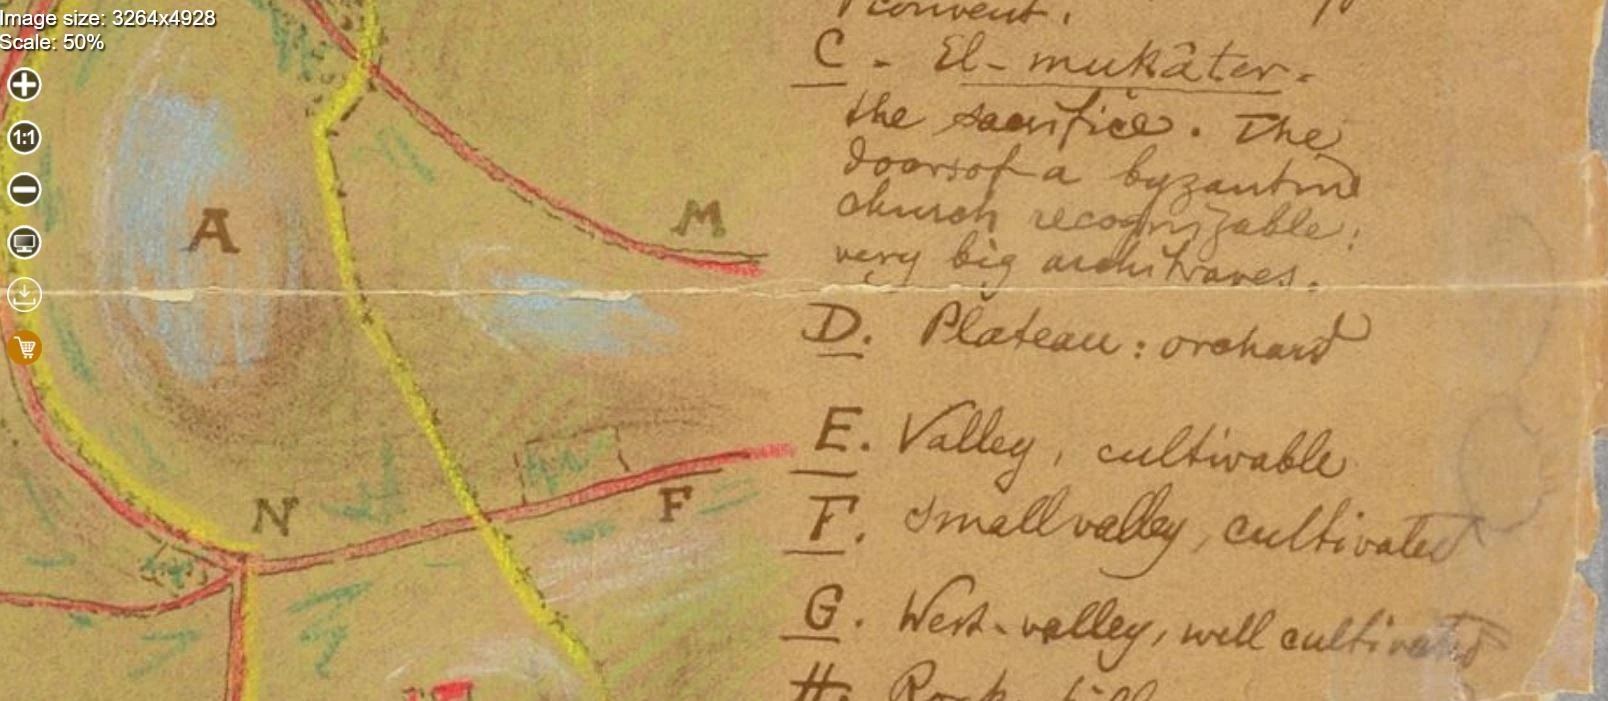 Image size: 3264x4928
Scale: 50%
1:1
convent.
C. El-mukâter.
the sacrifice. The
doors of a byzantine
church recognizable:
very big architraves.
D. Plateau: orchard
E. Valley, cultivable
F. Small valley, cultivated
G. West-valley, well cultivated
H. Rock
A
M
N
F